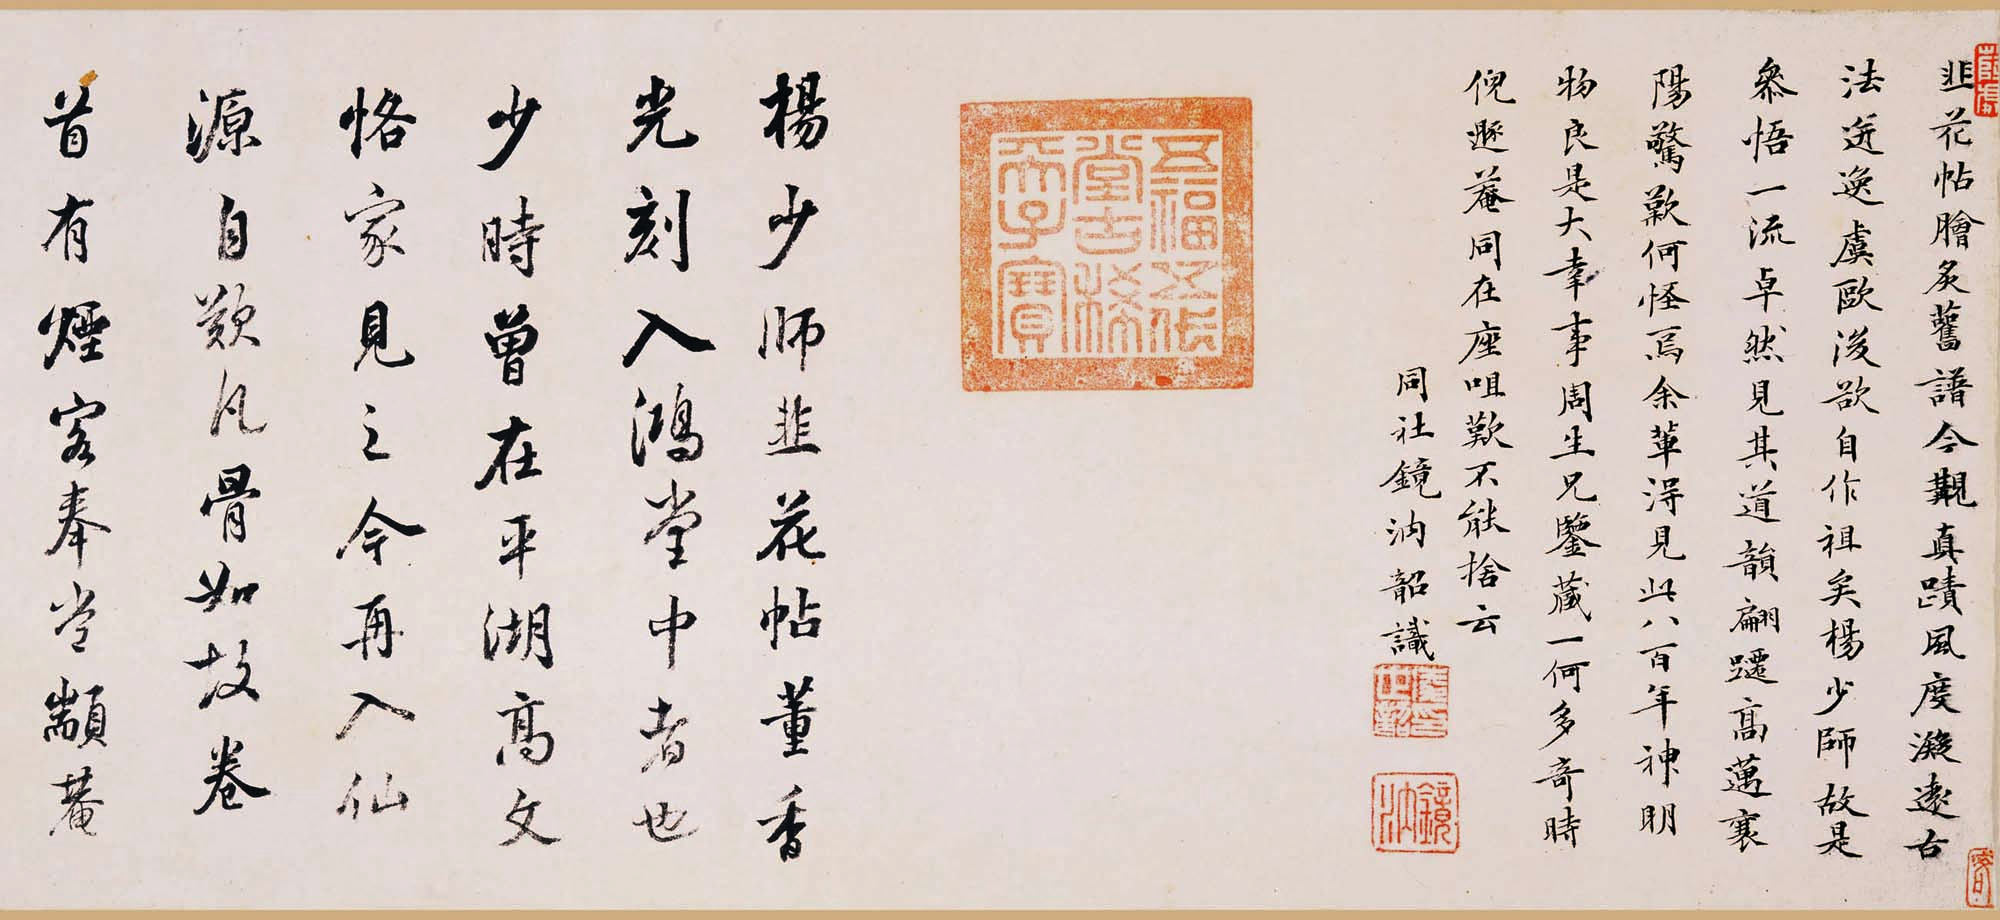 韭花帖膾炙舊譜今覯真蹟風度凝遠古
法迸逸虞歐後欲自作祖矣楊少師故是
參悟一流卓然見其道韻翩躚高邁襄
陽驚歎何怪焉余輩得見此八百年神明
物良是大幸事周生兄鑒藏一何多奇時
倪遯菴同在座咀歎不能捨云
同社鏡汭韶識
鏡汭
五福五代
堂古稀
天子寶
楊少師韭花帖董香
光刻入鴻堂中者也
少時曾在平湖高文
恪家見之今再入仙
源自歎凡骨如故卷
首有煙客奉常顓菴